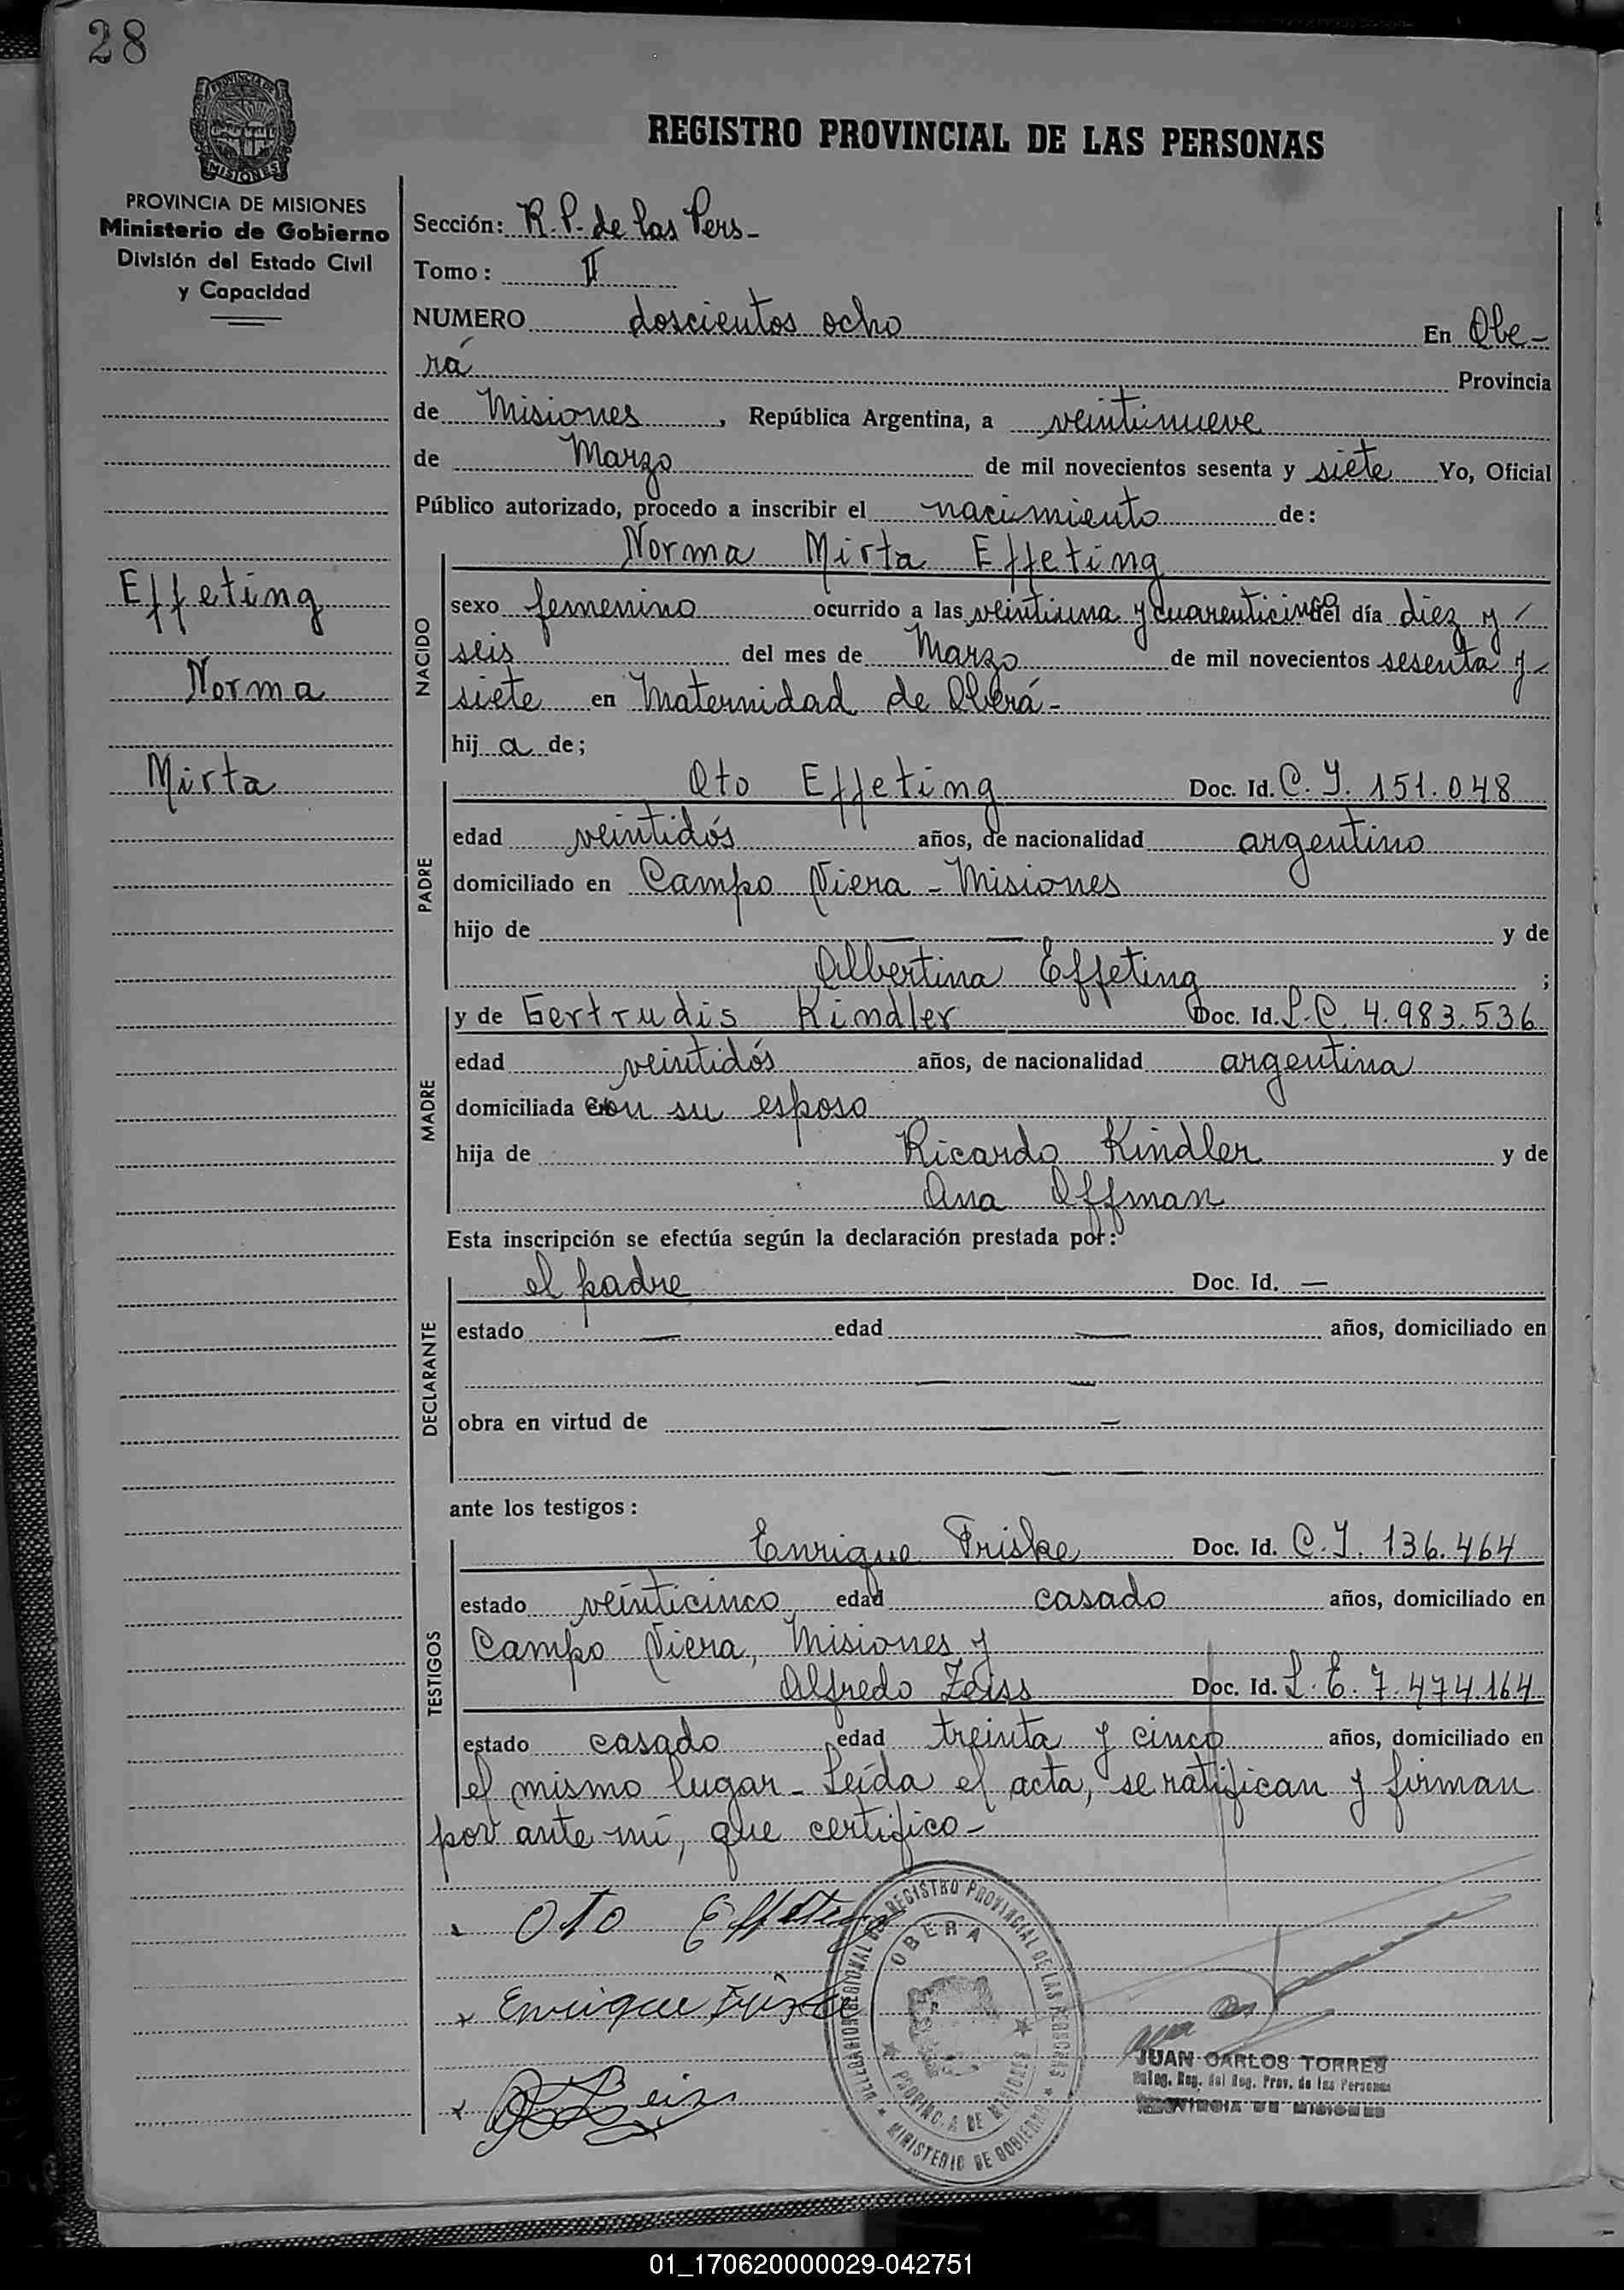 28
PROVINCIA DE
MISIONES
REGISTRO PROVINCIAL DE LAS PERSONAS
PROVINCIA DE MISIONES
Ministerio de Gobierno
División del Estado Civil
y Capacidad
Effeting
Norma
Mirta
Sección: R. P. de las Pers-
Tomo: II
NUMERO doscientos ocho En Obe-
rá Provincia
de Misiones, República Argentina, a veintinueve
de Marzo de mil novecientos sesenta y siete Yo, Oficial
Público autorizado, procedo a inscribir el nacimiento de:
NACIDO
Norma Mirta Effeting
sexo femenino ocurrido a las veintiuna y cuarenticinco del día diez y
seis del mes de Marzo de mil novecientos sesenta y
siete en Maternidad de Oberá-
hij a de;
PADRE
Oto Effeting Doc. Id. C. I. 151.048
edad veintidós años, de nacionalidad argentino
domiciliado en Campo Viera - Misiones
hijo de — — y de
Albertina Effeting ;
MADRE
y de Gertrudis Kindler Doc. Id. L. C. 4.983.536
edad veintidós años, de nacionalidad argentina
domiciliada con su esposo
hija de Ricardo Kindler y de
Ana Offman
Esta inscripción se efectúa según la declaración prestada por:
DECLARANTE
el padre Doc. Id. —
estado — edad — años, domiciliado en
— —
obra en virtud de — —
— —
ante los testigos:
TESTIGOS
Enrique Friske Doc. Id. C. I. 136.464
estado veinticinco edad casado años, domiciliado en
Campo Viera, Misiones y
Alfredo Zeiss Doc. Id. L. E. 7.474.164
estado casado edad treinta y cinco años, domiciliado en
el mismo lugar - Leída el acta, se ratifican y firman
por ante mí, que certifico-
Oto Effeting
Enrique Friske
DELEGACION REGIONAL DEL REGISTRO PROVINCIAL DE LAS PERSONAS
OBERA
PROVINCIA DE MISIONES
MINISTERIO DE GOBIERNO
JUAN CARLOS TORRES
Deleg. Reg. del Reg. Prov. de las Personas
PROVINCIA DE MISIONES
01_170620000029-042751